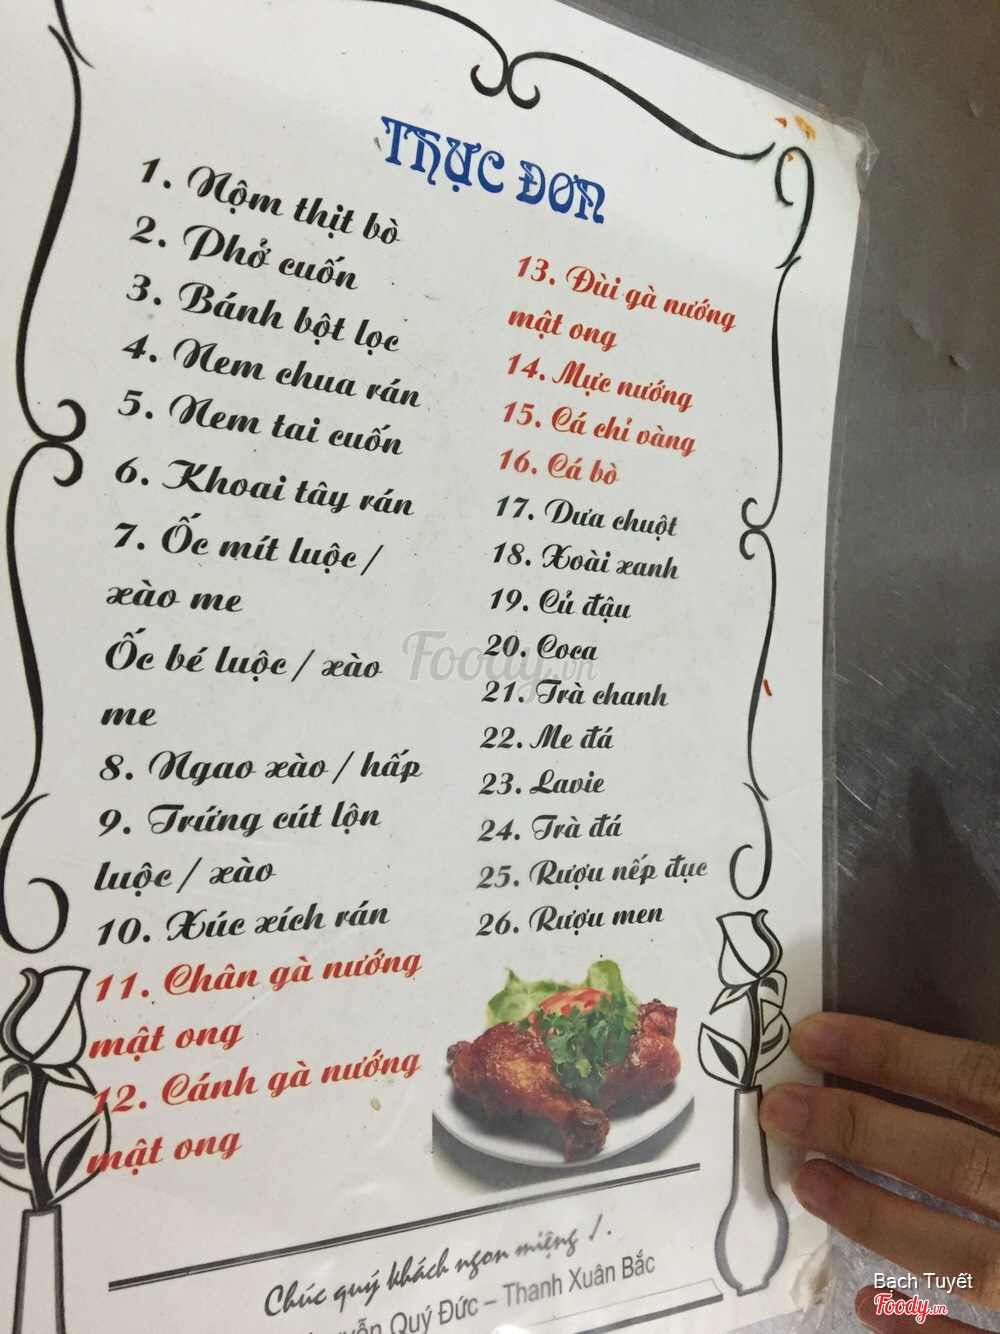 THỰC ĐƠN
1. Nộm thịt bò
2. Phở cuốn
3. Bánh bột lọc
4. Nem chua rán
5. Nem tai cuốn
6. Khoai tây rán
7. Ốc mít luộc /
xào me
Ốc bé luộc / xào
me
8. Ngao xào / hấp
9. Trứng cút lộn
luộc / xào
10. Xúc xích rán
11. Chân gà nướng
mật ong
12. Cánh gà nướng
mật ong
13. Đùi gà nướng
mật ong
14. Mực nướng
15. Cá chỉ vàng
16. Cá bò
17. Dưa chuột
18. Xoài xanh
19. Củ đậu
20. Coca
21. Trà chanh
22. Me đá
23. Lavie
24. Trà đá
25. Rượu nếp đục
26. Rượu men
Chúc quý khách ngon miệng !.
Quý Đức – Thanh Xuân Bắc
Foody.vn
Bạch Tuyết
Foody.vn